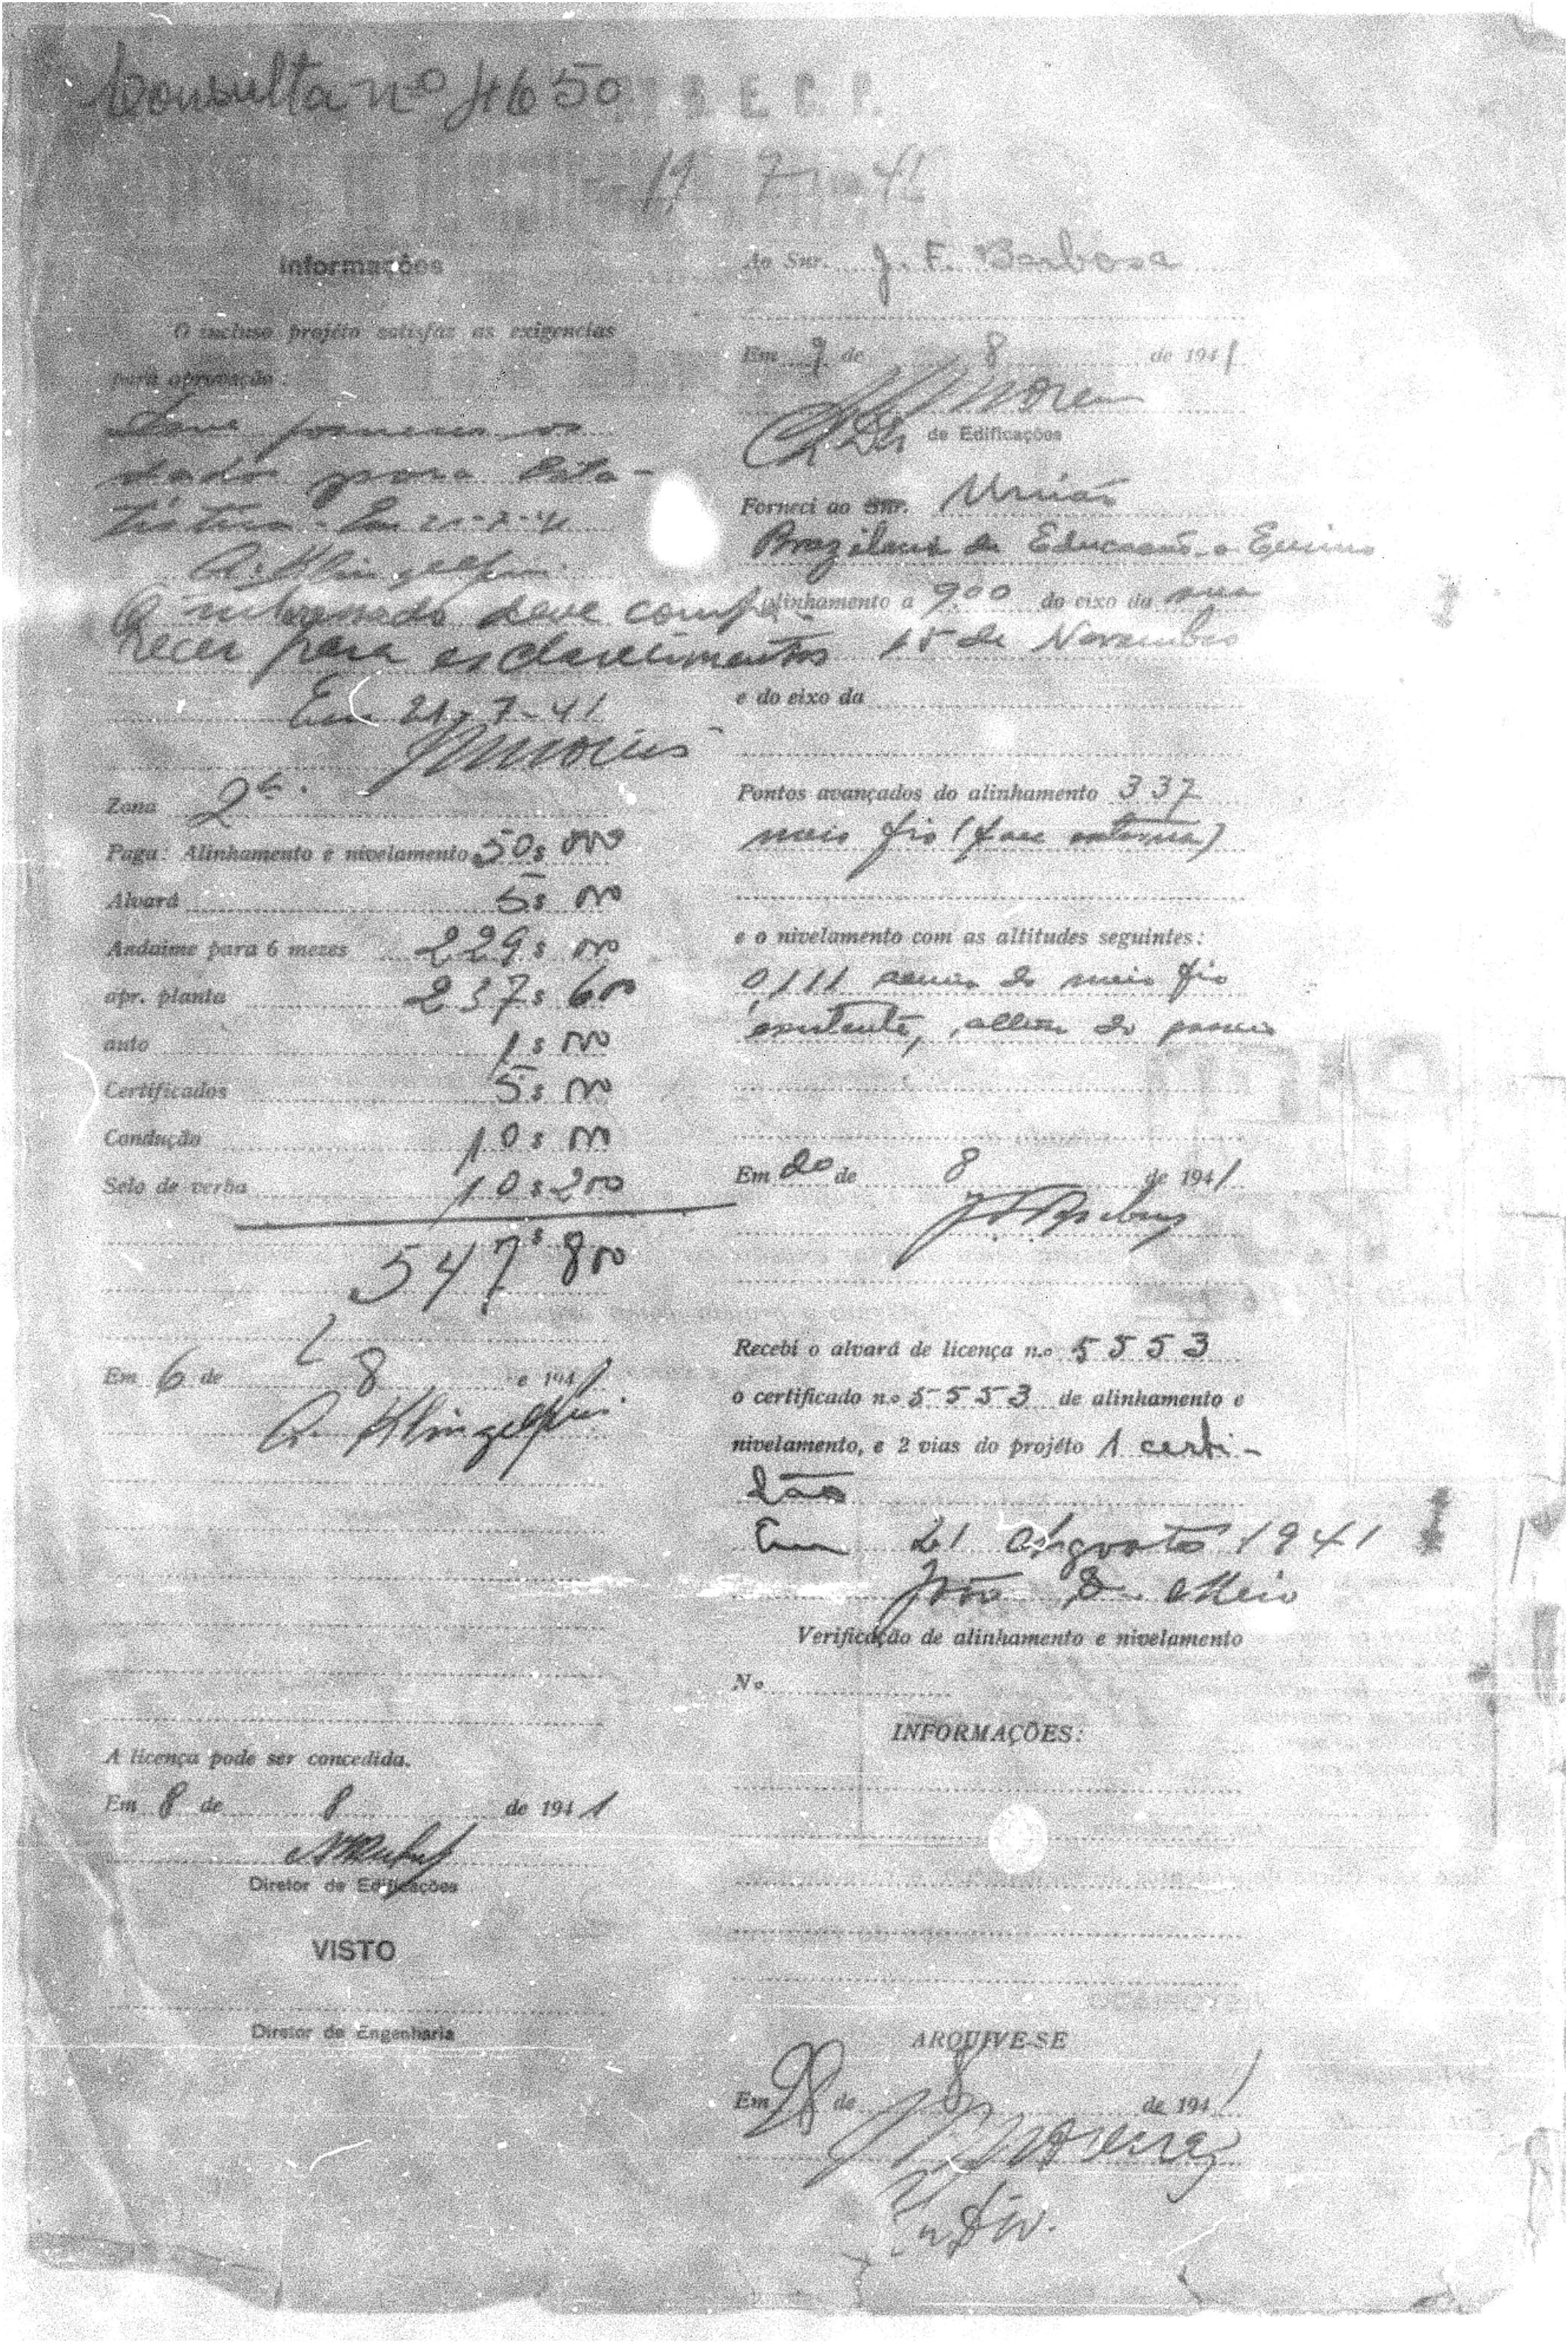 Consulta nº 4650
19 7 41
Informações
O incluso projéto satisfaz as exigencias
para aprovação:
Deve fornecer os
dados para Esta-
tistica. Em 21-7-41
A. Klingelfus.
O interessado deve compa-
recer para esclarecimentos
Em 21-7-41
Zona 2ª.
Paga: Alinhamento e nivelamento 50$000
Alvará 5$000
Andaime para 6 mezes 229$000
apr. planta 237$600
auto 1$000
Certificados 5$000
Condução 10$000
Selo de verba 10$200
547$800
Em 6 de 8 de 1941
A. Klingelfus.
A licença pode ser concedida.
Em 8 de 8 de 1941
Diretor de Edificações
VISTO
Diretor de Engenharia
Ao Snr. J. F. Barbosa
Em 9 de 8 de 1941
de Edificações
Forneci ao Snr. União
Brazileira de Educação e Ensino
alinhamento a 9.00 do eixo da rua
15 de Novembro
e do eixo da
Pontos avançados do alinhamento 337
meio fio (face externa)
e o nivelamento com as altitudes seguintes:
0,111 acima do meio fio
existente, além do passeio
Em 20 de 8 de 1941
Recebi o alvará de licença n.o 5553
o certificado n.o 5553 de alinhamento e
nivelamento, e 2 vias do projéto 1 certi-
dão
Em 21 Agosto 1941
João
Verificação de alinhamento e nivelamento
No
INFORMAÇÕES:
ARQUIVE-SE
Em 28 de 8 de 1941